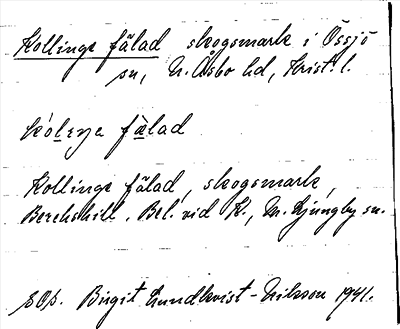 Kollinge fälad skogsmark i Össjö
sn, N. Åsbo hd, Krist. l.
fälad
Kollinge fälad, skogsmark,
Bel. vid K., N. Ljungby sn.
Birgit Lundkvist-Nilsson 1941.